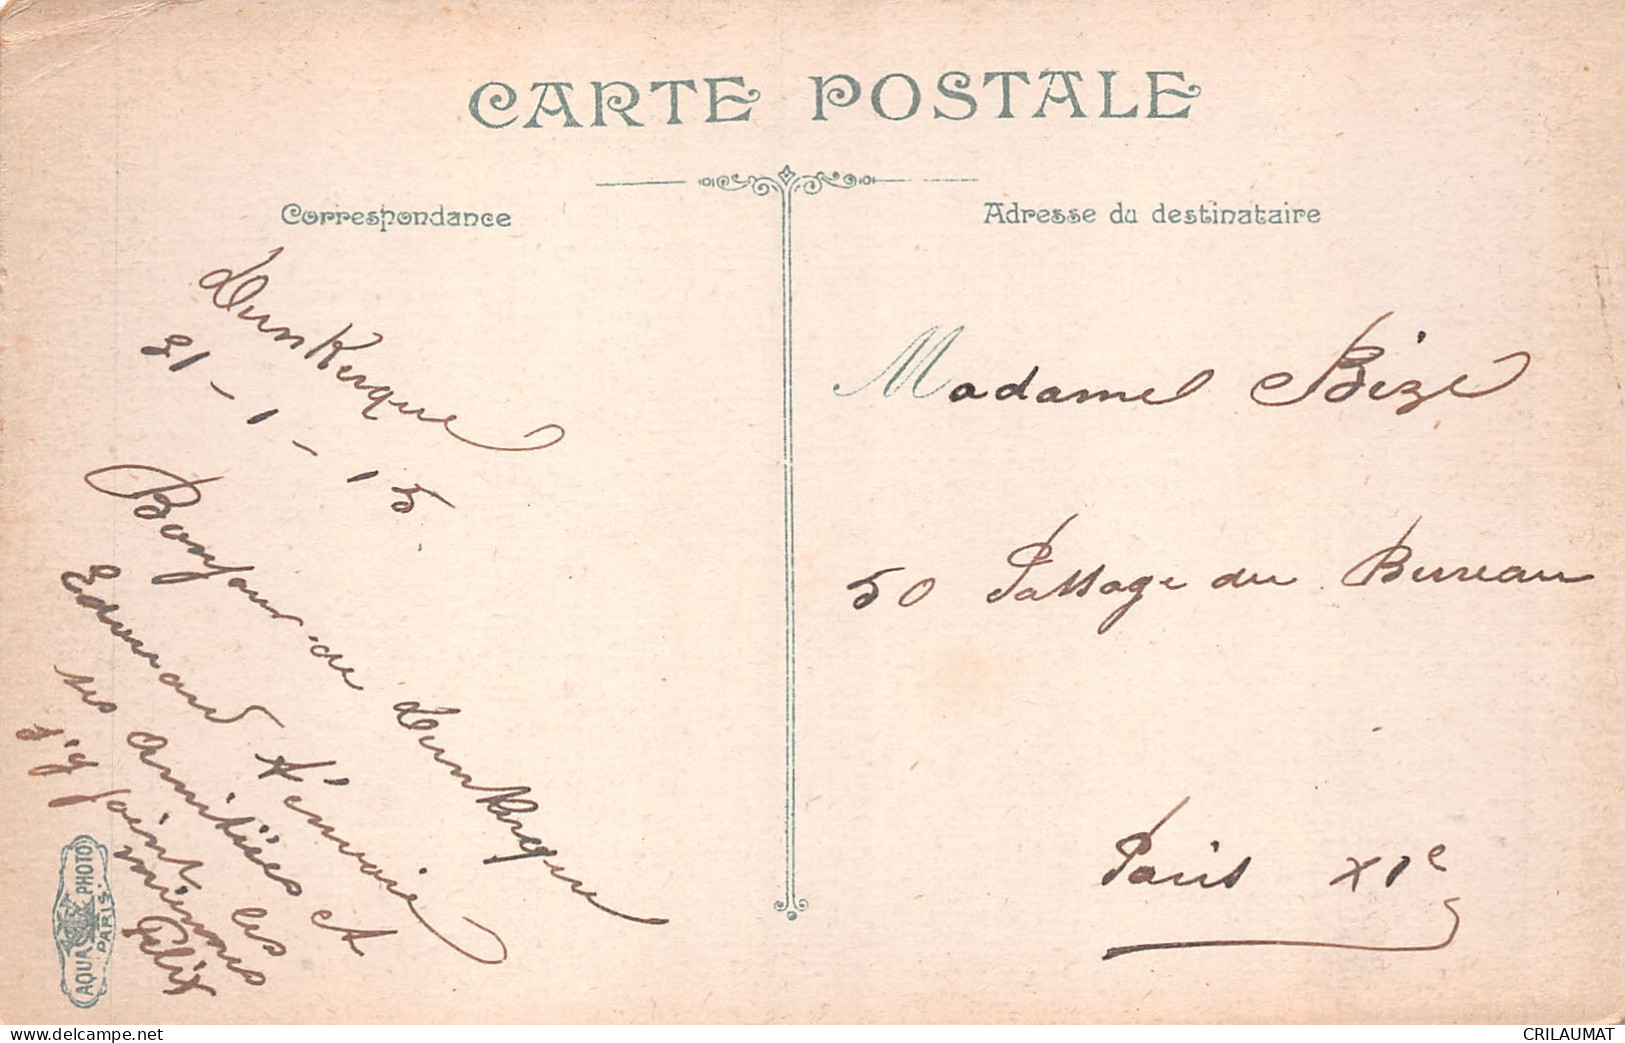 CARTE POSTALE
Correspondance
Adresse du destinataire
Dunkerque
31-1-15
Bonjour de Dunkerque
Edmond t'envoie
ses amitiés et
j'y joint les
miennes
Félix
Madame Bizé
50 Passage du Bureau
Paris XIe
AQUA PHOTO
PARIS
www.delcampe.net
CRILAUMAT